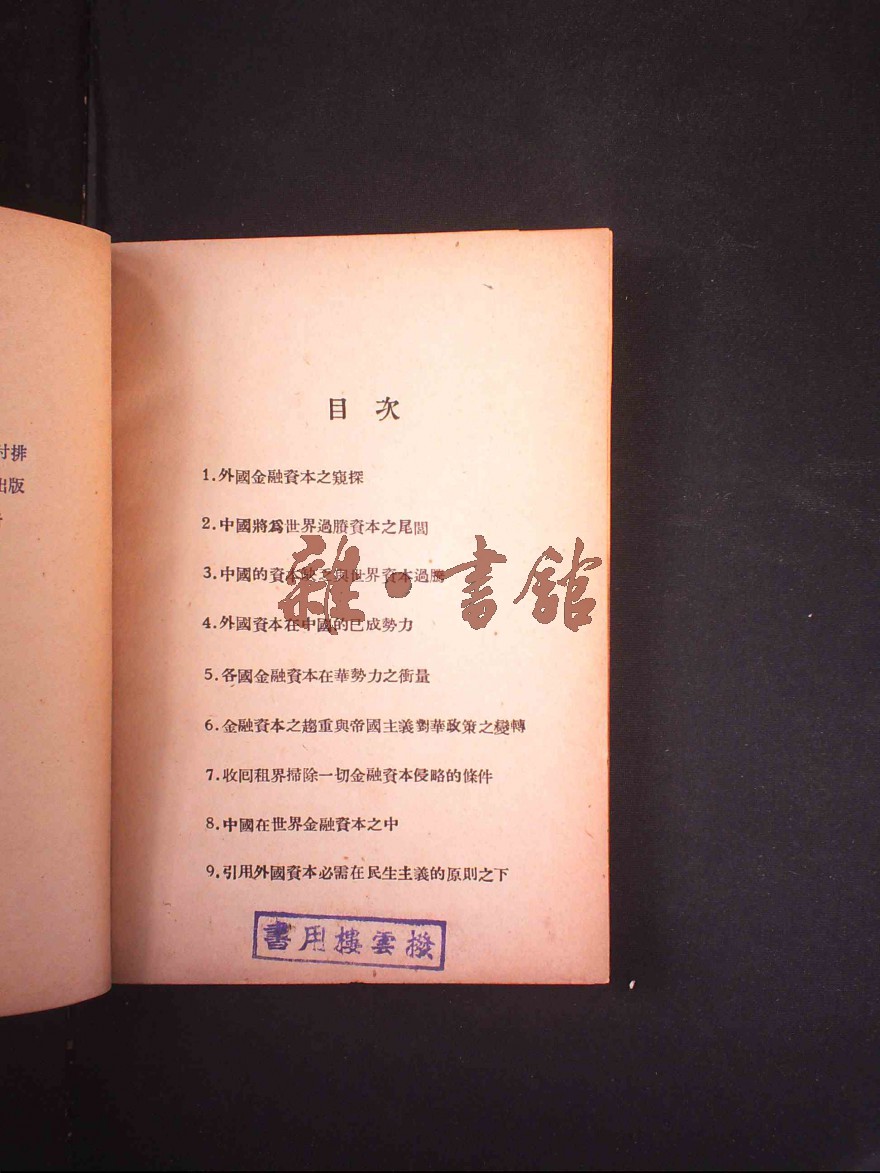 付排
出版
目次
1.外國金融資本之窺探
2.中國將爲世界過賸資本之尾閭
3.中國的資本缺乏與世界資本過賸
4.外國資本在中國的已成勢力
5.各國金融資本在華勢力之衝量
6.金融資本之趨重與帝國主義對華政策之變轉
7.收回租界掃除一切金融資本侵略的條件
8.中國在世界金融資本之中
9.引用外國資本必需在民生主義的原則之下
雜·書館
書用樓雲撥